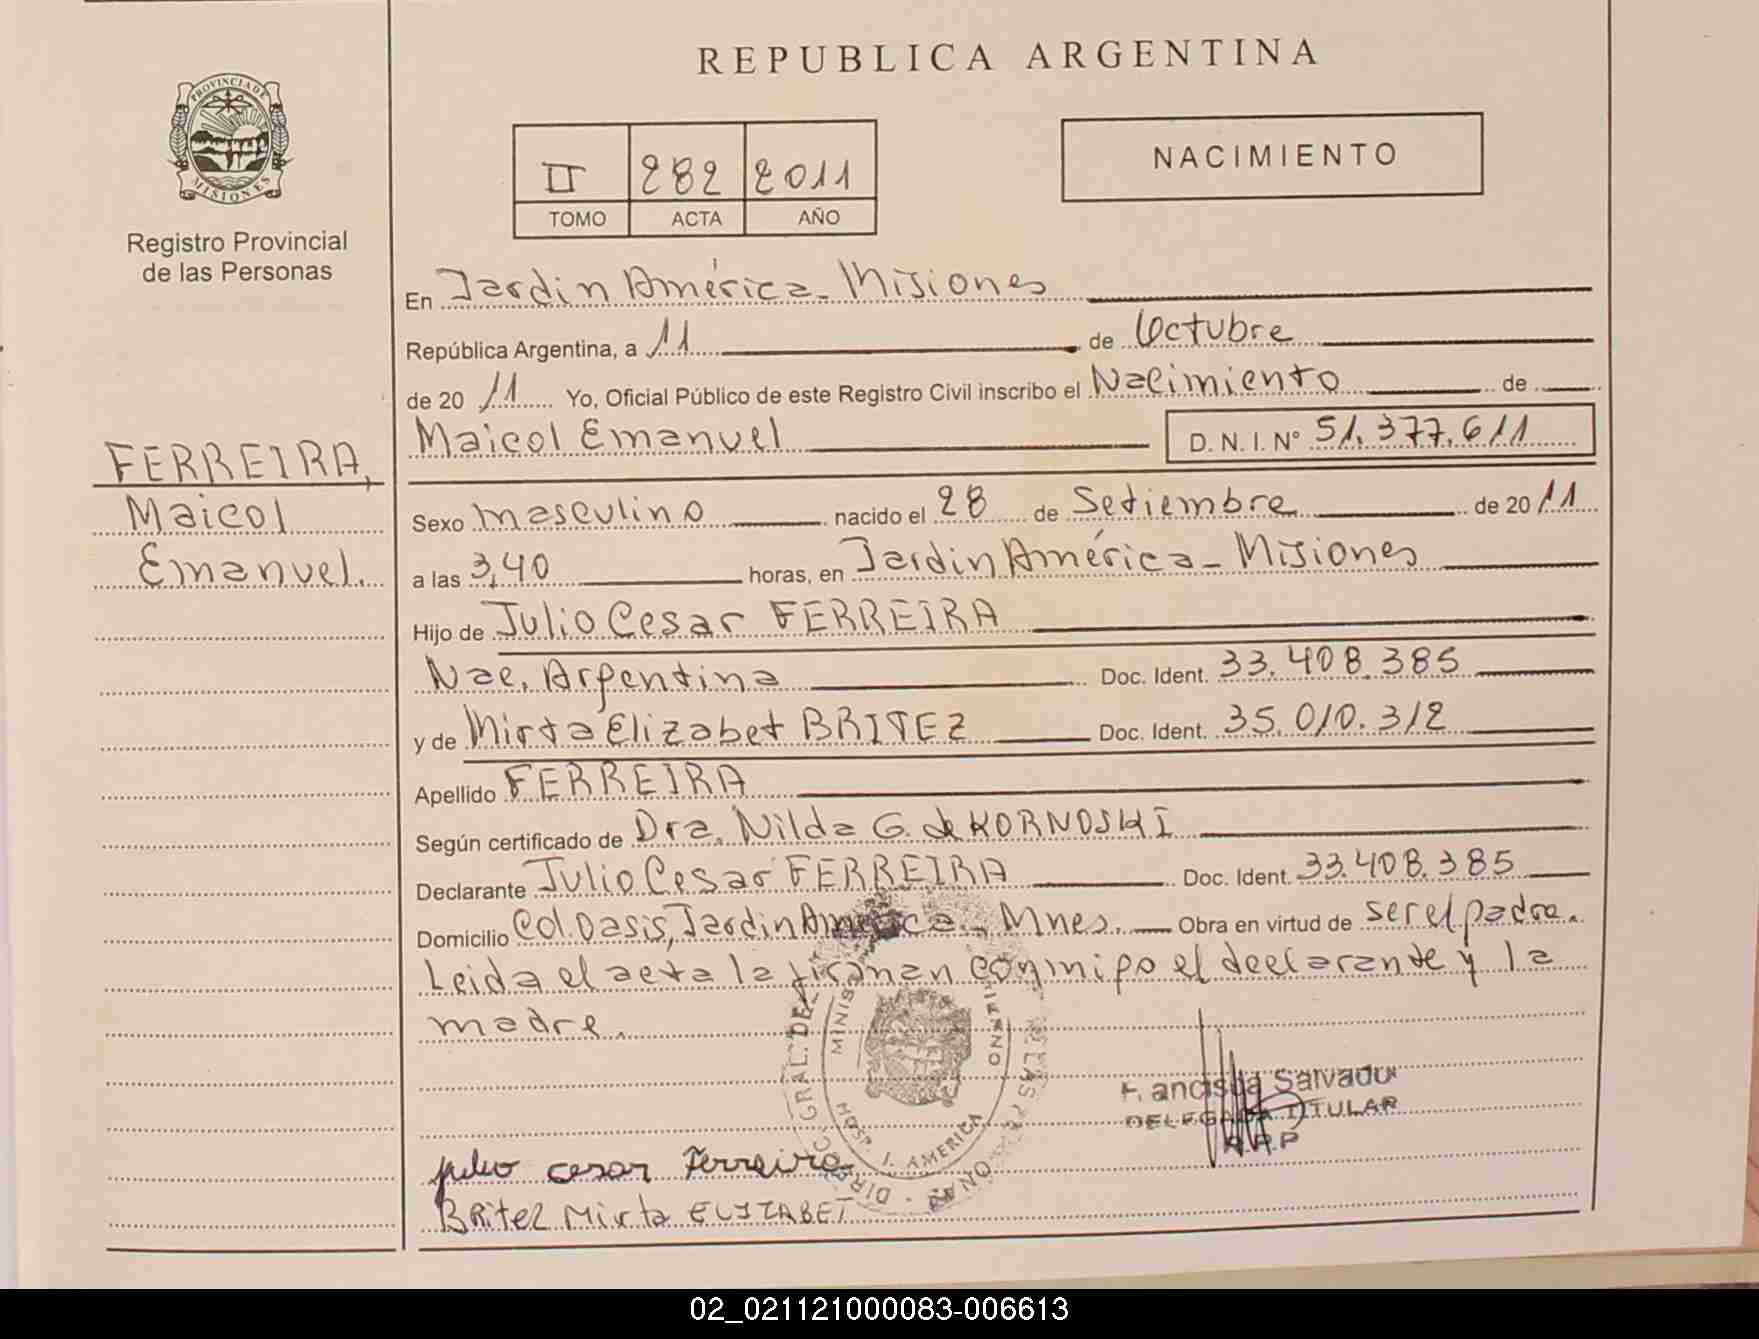 REPUBLICA ARGENTINA
PROVINCIA DE
MISIONES
Registro Provincial
de las Personas
II 282 2011
TOMO ACTA AÑO
NACIMIENTO
En Jardin América - Misiones
República Argentina, a 11 de Octubre
de 20 11 Yo, Oficial Público de este Registro Civil inscribo el Nacimiento de
Maicol Emanuel D. N. I. N° 51.377.611
FERREIRA,
Maicol
Emanuel.
Sexo masculino nacido el 28 de Setiembre de 20 11
a las 3,40 horas, en Jardin América - Misiones
Hijo de Julio Cesar FERREIRA
Nac. Argentina Doc. Ident. 33.408.385
y de Mirta Elizabet BRITEZ Doc. Ident. 35.010.312
Apellido FERREIRA
Según certificado de Dra. Nilda G. de KORNOSKI
Declarante Julio Cesar FERREIRA Doc. Ident. 33.408.385
Domicilio Col. Oasis, Jardin América - Mnes. Obra en virtud de ser el padre.
Leida el acta la firman conmigo el declarante y la
madre.
HOSP. J. AMERICA
Salvador
DELEGADA TITULAR
R.P.P
Julio cesar Ferreira
Britez Mirta ELIZABET
02_021121000083-006613